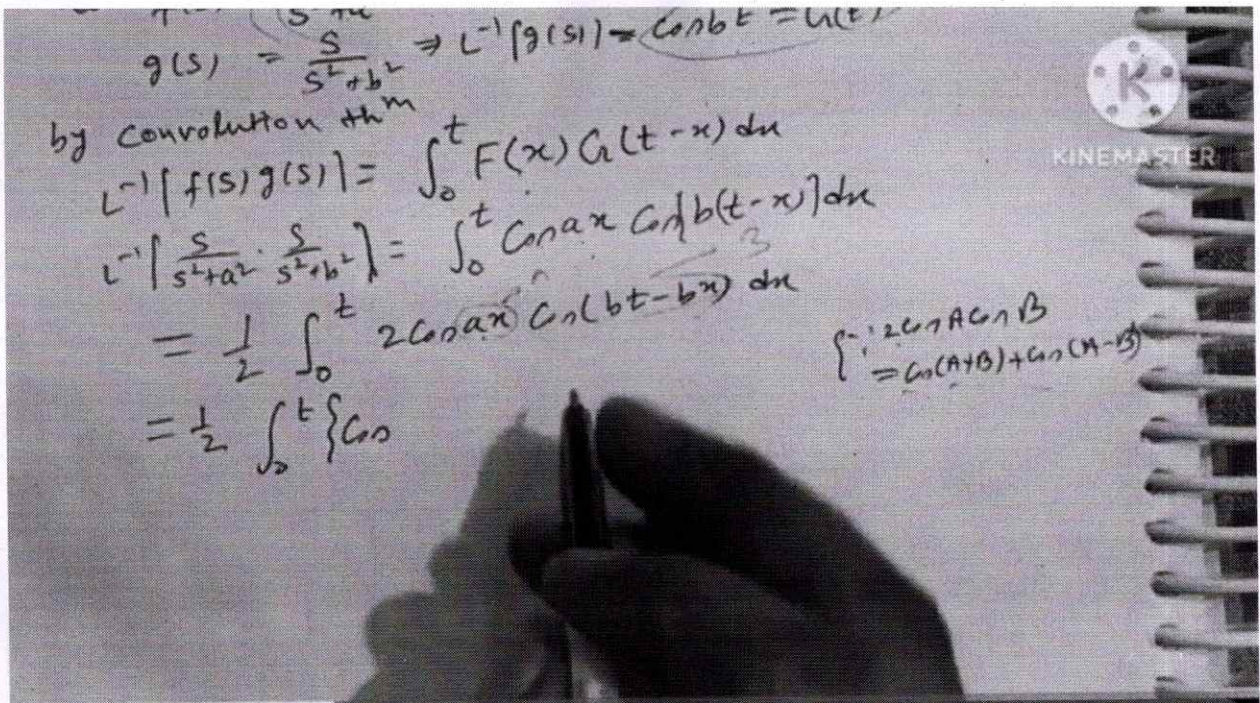 g(s) = s/(s²+b²) ⇒ L⁻¹[g(s)] = Cosbt = G(t)
by convolution thᵐ
L⁻¹[f(s)g(s)] = ∫₀ᵗ F(x) G(t-x) dx
L⁻¹[s/(s²+a²) · s/(s²+b²)] = ∫₀ᵗ Cosax Cos{b(t-x)} dx
= 1/2 ∫₀ᵗ 2Cosax Cos(bt-bx) dx
{∵ 2CosACosB
= Cos(A+B)+Cos(A-B)
= 1/2 ∫₀ᵗ {Cos
KINEMASTER